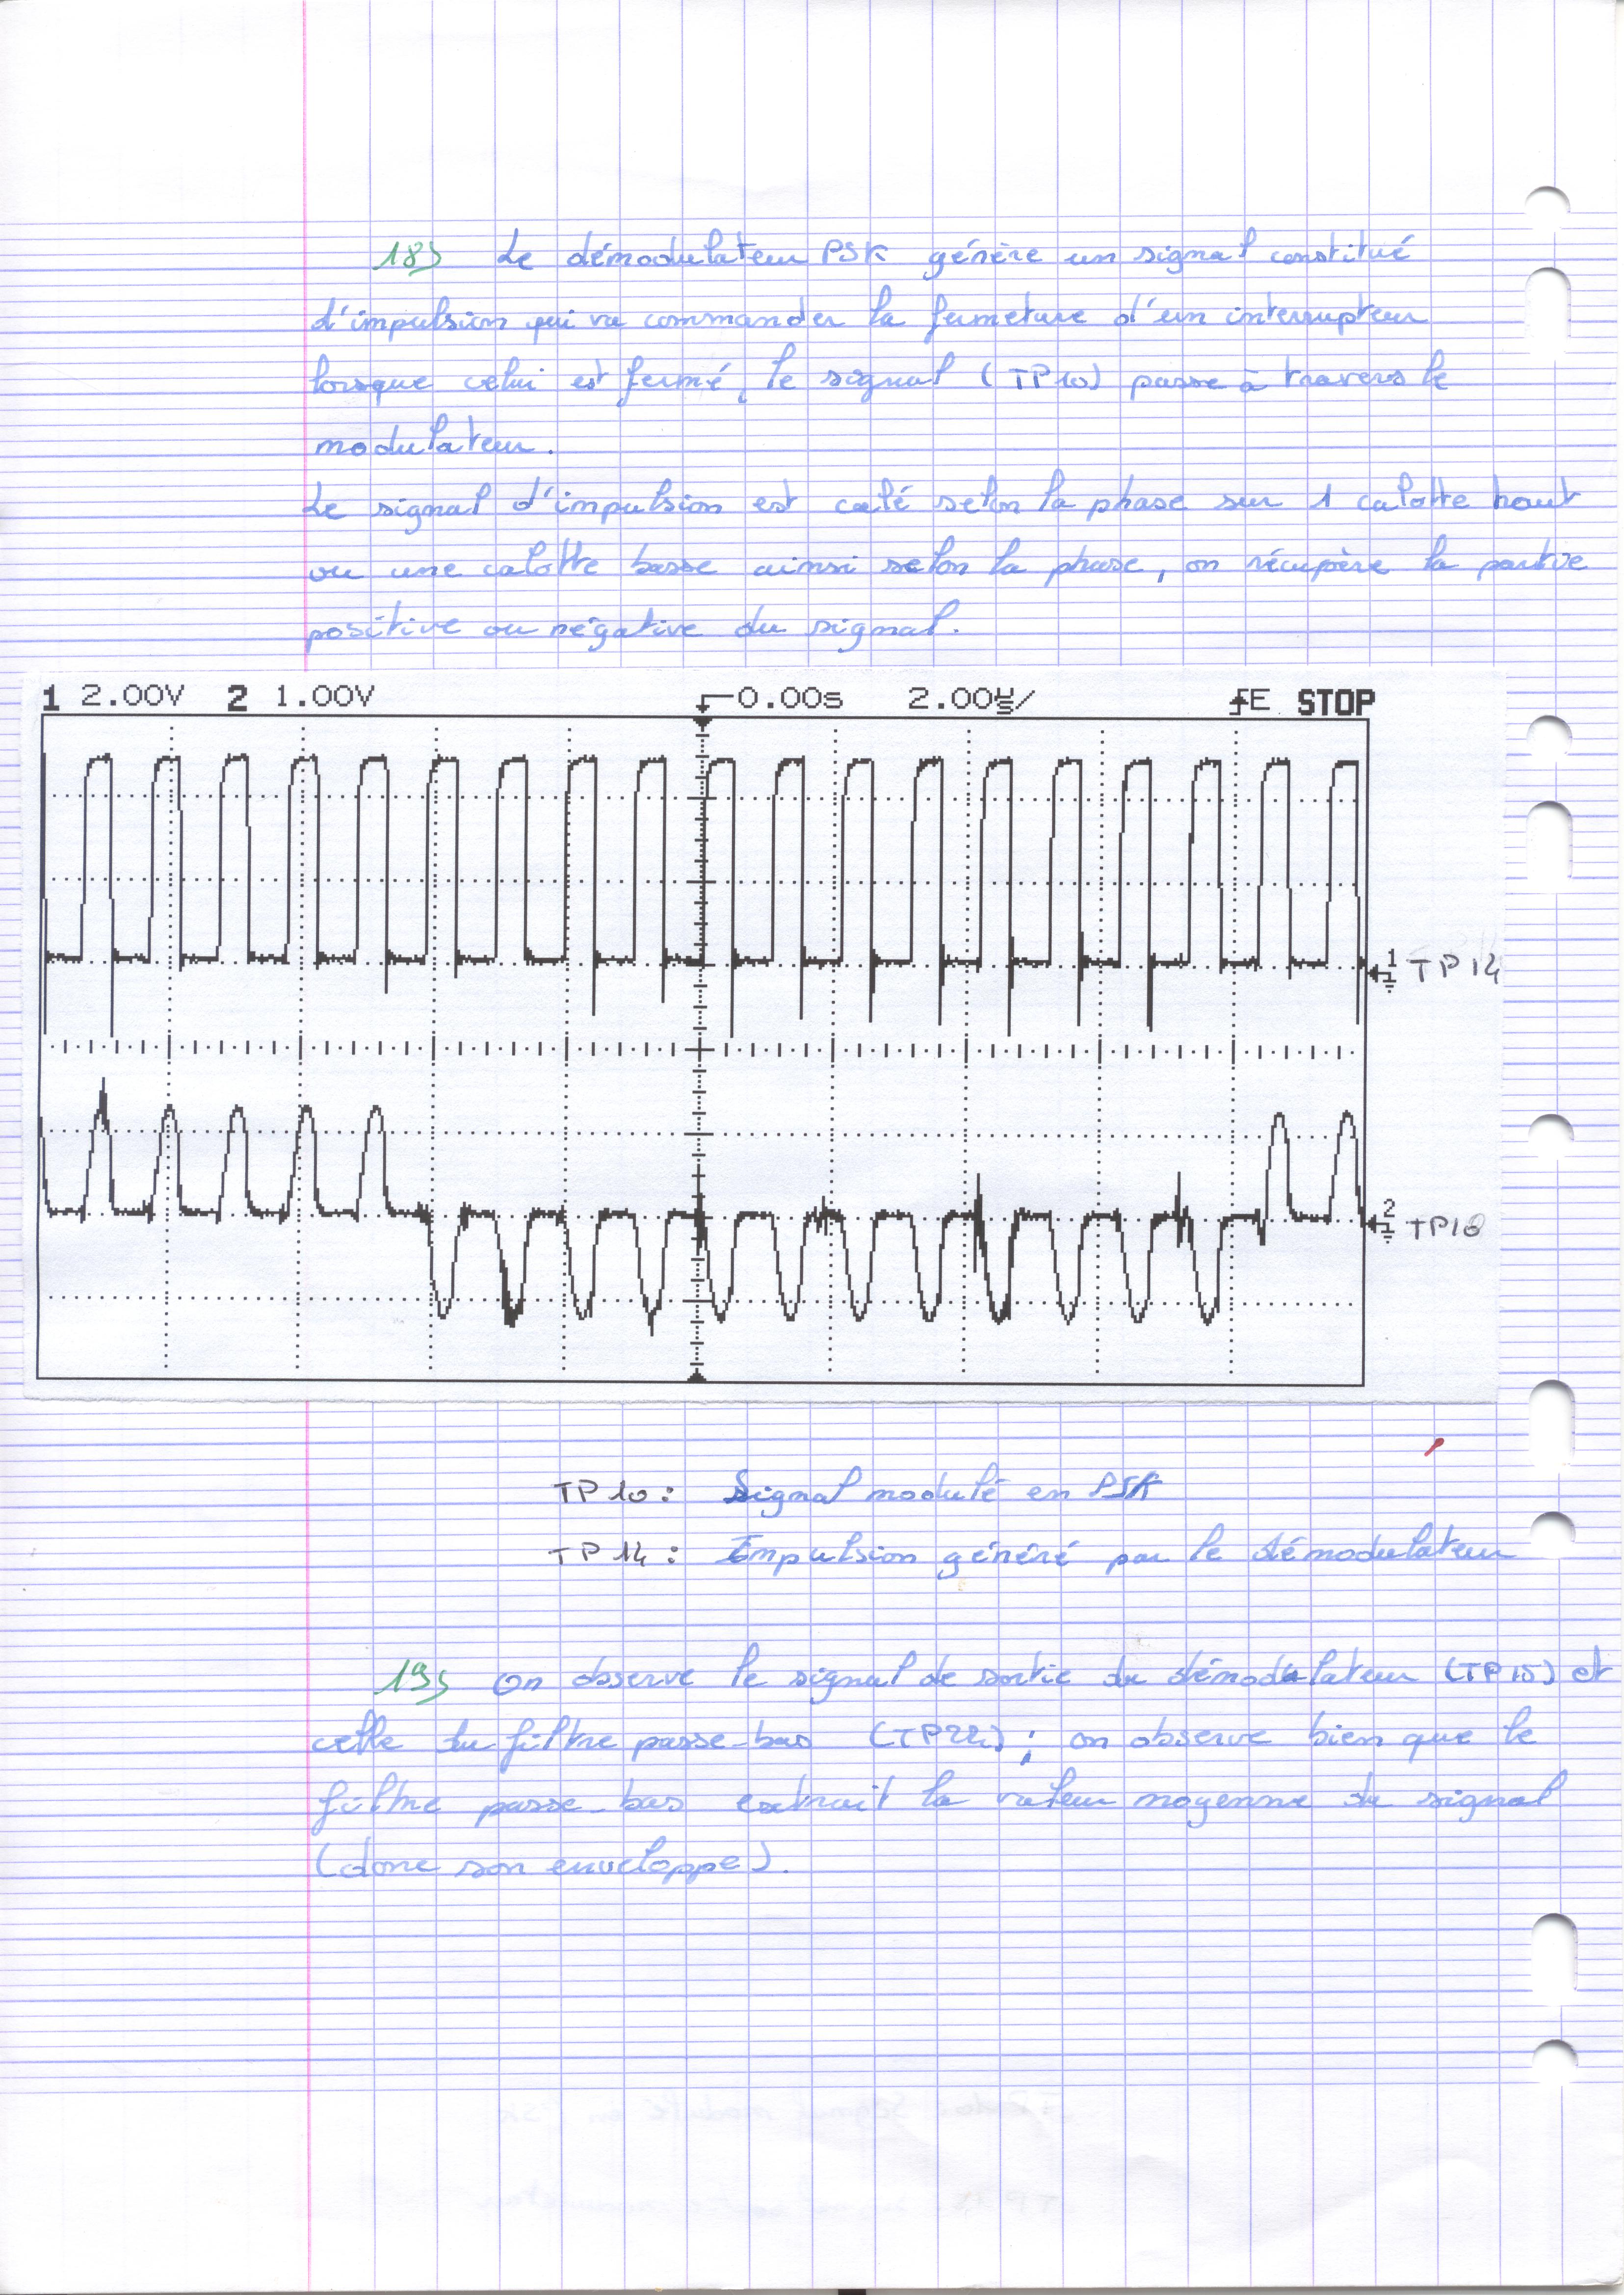 18) Le démodulateur PSK génère un signal constitué
d'impulsion qui va commander la fermeture d'un interrupteur
lorsque celui est fermé, le signal (TP10) passe à travers le
modulateur.
Le signal d'impulsion est calé selon la phase sur 1 calotte haut
ou une calotte basse ainsi selon la phase, on récupère la partie
positive ou négative du signal.
1 2.00V 2 1.00V 0.00s 2.00µs/ E STOP
1 TP14
2 TP10
TP10: Signal modulé en PSK
TP14: Impulsion généré par le démodulateur
19) On observe le signal de sortie du démodulateur (TP15) et
celle du filtre passe-bas (TP22); on observe bien que le
filtre passe-bas extrait la valeur moyenne du signal
(donc son enveloppe).